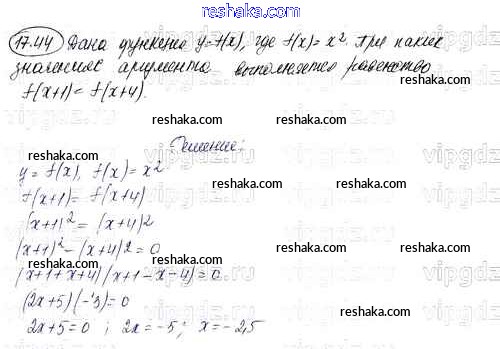 reshaka.com
17.44 Дана функция y=f(x), где f(x)=x². При каких
значениях аргумента выполняется равенство
f(x+1)=f(x+4).
Решение:
y=f(x), f(x)=x²
f(x+1)=f(x+4)
(x+1)²=(x+4)2
(x+1)²-(x+4)2=0
(x+1+x+4)(x+1-x-4)=0
(2x+5)(-3)=0
2x+5=0; 2x=-5; x=-2,5
reshaka.com
reshaka.com reshaka.com reshaka.com
reshaka.com reshaka.com reshaka.com
reshaka.com reshaka.com
reshaka.com reshaka.com
vipgdz.ru vipgdz.ru